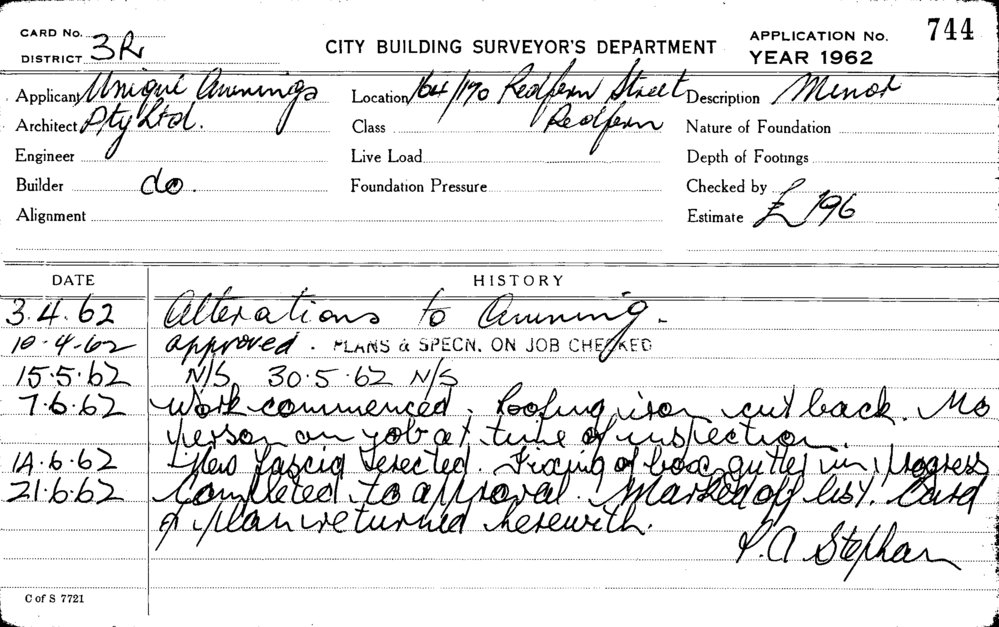 CARD No.
DISTRICT 3R
CITY BUILDING SURVEYOR'S DEPARTMENT
APPLICATION No. 744
YEAR 1962
Applicant Unique Awnings
Location 164/170 Redfern Street
Description Minor
Architect Pty Ltd.
Class Redfern
Nature of Foundation
Engineer
Live Load
Depth of Footings
Builder do.
Foundation Pressure
Checked by
Alignment
Estimate £196
DATE HISTORY
3.4.62 Alterations to Awning.
10-4-62 approved. PLANS & SPECN. ON JOB CHECKED
15.5.62 N/S 30.5.62 N/S
7.6.62 Work commenced. Roofing iron cut back. No
person on job at time of inspection.
14.6.62 New fascia erected. Fixing of box gutter in progress
21.6.62 Completed to approval. Marked off list. Card
& plan returned herewith.
Stephan
C of S 7721